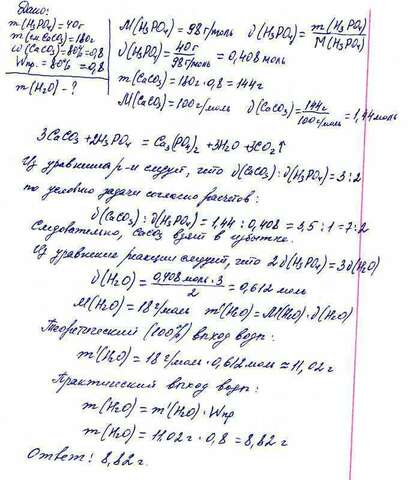 Дано:
m(H₃PO₄)=40г
m(см CaCO₃)=180г
ω(CaCO₃)=80%=0,8
Wпр.=80%=0,8
m(H₂O)-?
M(H₃PO₄)=98г/моль   ϑ(H₃PO₄)=m(H₃PO₄)/M(H₃PO₄)
ϑ(H₃PO₄)=40г/98г/моль=0,408 моль
m(CaCO₃)=180г·0,8=144г
M(CaCO₃)=100г/моль   ϑ(CaCO₃)=144г/100г/моль=1,44моль
3CaCO₃+2H₃PO₄=Ca₃(PO₄)₂+3H₂O+3CO₂↑
Из уравнения р-и следует, что ϑ(CaCO₃):ϑ(H₃PO₄)=3:2
по условию задачи согласно расчетов:
ϑ(CaCO₃):ϑ(H₃PO₄)=1,44:0,408=3,5:1=7:2
Следовательно, CaCO₃ взят в избытке.
Из уравнение реакции следует, что 2ϑ(H₃PO₄)=3ϑ(H₂O)
ϑ(H₂O)=0,408 моль·3/2=0,612 моль
M(H₂O)=18г/моль   m'(H₂O)=M(H₂O)·ϑ(H₂O)
Теоретический (100%) выход воды:
m'(H₂O)=18г/моль·0,612моль≈11,02г
Практический выход воды:
m(H₂O)=m'(H₂O)·Wпр
m(H₂O)=11,02г·0,8=8,82г
Ответ: 8,82г.